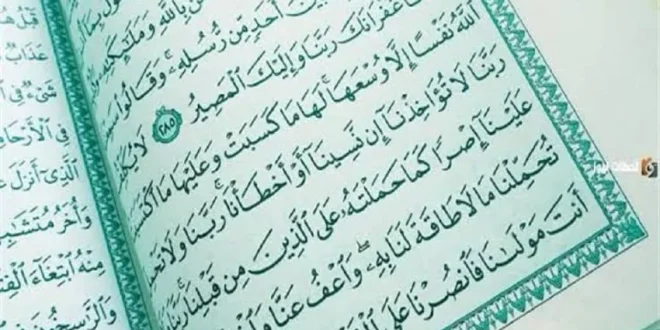 بِٱللَّهِ وَمَلَٰٓئِكَتِهِ
بَيْنَ أَحَدٍ مِّن رُّسُلِهِۦ ۚ وَقَالُوا۟
غُفْرَانَكَ رَبَّنَا وَإِلَيْكَ ٱلْمَصِيرُ ٢٨٥ لَا
ٱللَّهُ نَفْسًا إِلَّا وُسْعَهَا ۚ لَهَا مَا كَسَبَتْ وَعَلَيْهَا مَا
رَبَّنَا لَا تُؤَاخِذْنَآ إِن نَّسِينَآ أَوْ أَخْطَأْنَا ۚ رَبَّنَا وَلَا
عَلَيْنَآ إِصْرًا كَمَا حَمَلْتَهُۥ عَلَى ٱلَّذِينَ مِن قَبْلِنَا ۚ رَبَّنَا
تُحَمِّلْنَا مَا لَا طَاقَةَ لَنَا بِهِۦ ۖ وَٱعْفُ عَنَّا
أَنتَ مَوْلَىٰنَا فَٱنصُرْنَا عَلَى
عَذَابٌ
شَىْءٌ فِى
فِى
ٱلَّذِىٓ أَنزَلَ
وَأُخَرُ
مِنْهُ ٱبْتِغَآءَ
لحظات نيوز